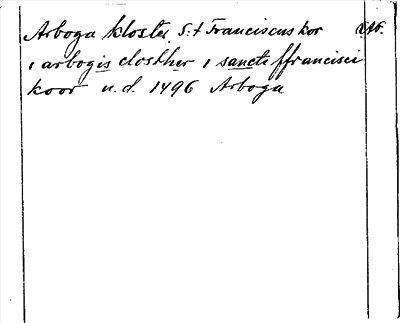 Arboga kloster S:t Franciscus kor
i arbogis closther i sancti ffrancisci
koor n.d. 1496 Arboga